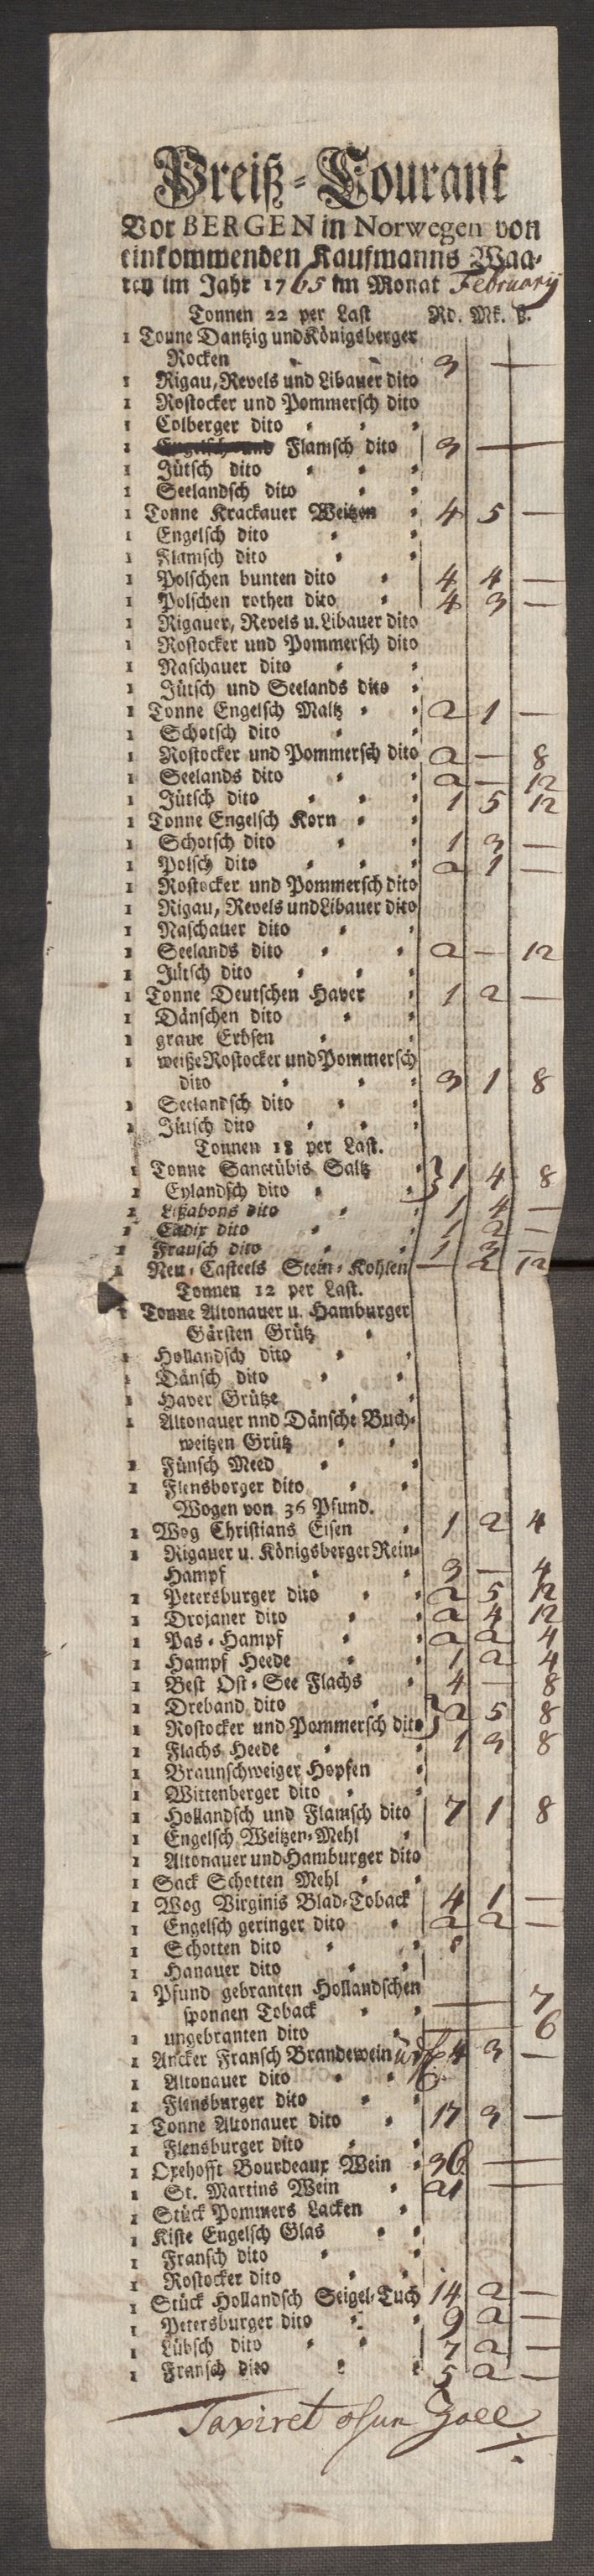 Preiß-Courant
Vor BERGEN in Norwegen von
einkommenden Kaufmanns Waa-
ren im Jahr 1765 im Monat February
Tonnen 22 per Last Rd. Mk. ß.
1 Tonne Dantzig und Königsberger
Rocken 3 —
1 Rigau, Revels und Libauer dito
1 Rostocker und Pommersch dito
1 Colberger dito
1 Flamsch dito 3 —
1 Jütsch dito
1 Seelandsch dito
1 Tonne Krackauer Weitzen 4 5 —
1 Engelsch dito
1 Flamsch dito
1 Polschen bunten dito 4 4 —
1 Polschen rothen dito 4 3 —
1 Rigauer, Revels u. Libauer dito
1 Rostocker und Pommersch dito
1 Naschauer dito
1 Jütsch und Seelands dito
1 Tonne Engelsch Maltz 2 1 —
1 Schotsch dito
1 Rostocker und Pommersch dito 2 — 8
1 Seelands dito 2 — 12
1 Jütsch dito 1 5 12
1 Tonne Engelsch Korn
1 Schotsch dito 1 3 —
1 Polsch dito 2 1 —
1 Rostocker und Pommersch dito
1 Rigau, Revels und Libauer dito
1 Naschauer dito
1 Seelands dito 2 — 12
1 Jütsch dito
1 Tonne Deutschen Haver 1 2 —
1 Dänschen dito
1 graue Erbsen
1 weiße Rostocker und Pommersch
dito 3 1 8
1 Seelandsch dito
1 Jütsch dito
Tonnen 18 per Last.
1 Tonne Sanctübis Saltz } 1 4 8
1 Eylandsch dito
1 Lißabons dito 1 4 —
1 Cadix dito 1 2 —
1 Fransch dito 1 3 —
1 Neu-Casteels Stein-Kohlen — 2 12
Tonnen 12 per Last.
1 Tonne Altonauer u. Hamburger
Gärsten Grütz
1 Hollandsch dito
1 Dänsch dito
1 Haver Grütze
1 Altonauer nnd Dänsche Buch-
weitzen Grütz
1 Fünsch Meed
1 Flensborger dito
Wogen von 36 Pfund.
1 Wog Christians Eisen 1 2 4
1 Rigauer u. Königsberger Rein-
Hampf 3 — 4
1 Petersburger dito 2 5 12
1 Drojaner dito 2 4 12
1 Pas-Hampf 2 2 4
1 Hampf Heede 1 2 4
1 Best Ost-See Flachs 4 — 8
1 Dreband dito } 2 5 8
1 Rostocker und Pommersch dito
1 Flachs Heede 1 3 8
1 Braunschweiger Hopfen
1 Wittenberger dito
1 Hollandsch und Flamsch dito 7 1 8
1 Engelsch Weitzen-Mehl
1 Altonauer und Hamburger dito
1 Sack Schotten Mehl
1 Wog Virginis Blad-Toback 4 1 —
1 Engelsch geringer dito 2 2 —
1 Schotten dito
1 Hanauer dito
1 Pfund gebranten Hollandschen
sponnen Toback — 7
1 ungebranten dito — 6
1 Ancker Fransch Brandewein 4 3 —
1 Altonauer dito
1 Flensburger dito
1 Tonne Altonauer dito 17 3 —
1 Flensburger dito
1 Oxehofft Bourdeaux Wein 36 —
1 St. Martins Wein 21 —
1 Stück Pommers Lacken
1 Kiste Engelsch Glas
1 Fransch dito
1 Rostocker dito
1 Stück Hollandsch Seigel-Tuch 14 2 —
1 Petersburger dito 9 2 —
1 Lübsch dito 7 2 —
1 Fransch dito 5 2 —
Taxiret ohne Zoll